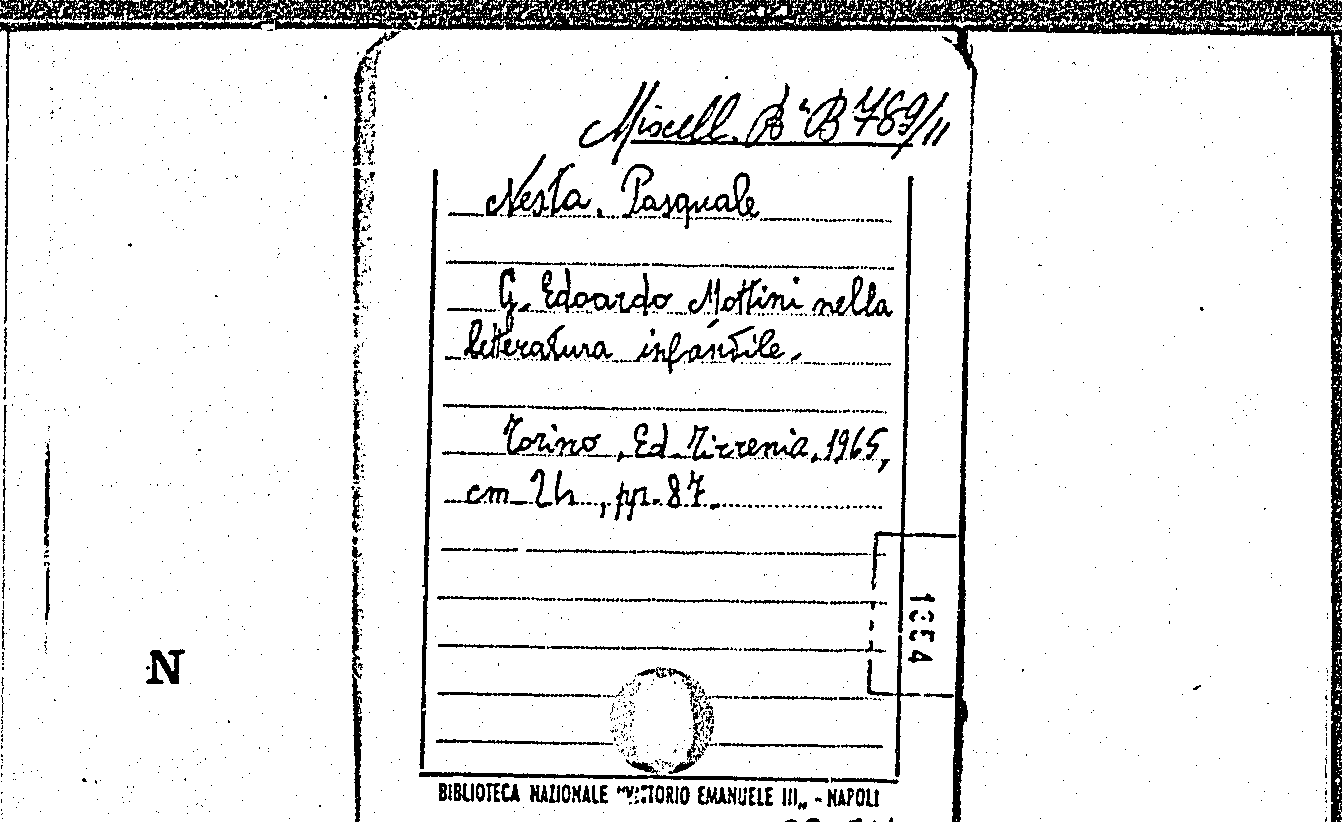 Miscell. Bª B 789/11
Nesta, Pasquale
G. Edoardo Mottini nella
letteratura infantile.
Torino, Ed. Tirrenia, 1965,
cm 24, pp. 87.
N
BIBLIOTECA NAZIONALE "VITTORIO EMANUELE III„ - NAPOLI